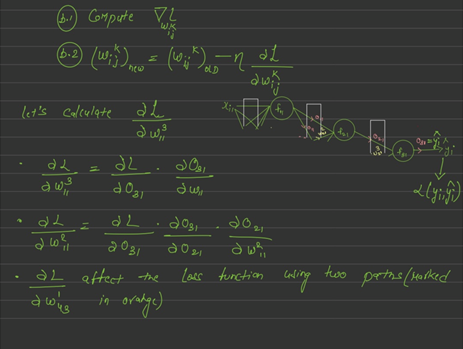 b.1 Compute ∇L w_ij^k
b.2 (w_ij^k)new = (w_ij^k)OLD − η ∂L/∂w_ij^k
let's calculate ∂L/∂w_11^3
x_i1 f_11 f_21 f_31 O_31 = ŷ_i y_i
• ∂L/∂w_11^3 = ∂L/∂O_31 · ∂O_31/∂w_11
L(y_i, ŷ_i)
• ∂L/∂w_11^2 = ∂L/∂O_31 · ∂O_31/∂O_21 · ∂O_21/∂w_11^2
• ∂L/∂w_43^1 affect the loss function using two paths (marked
in orange)